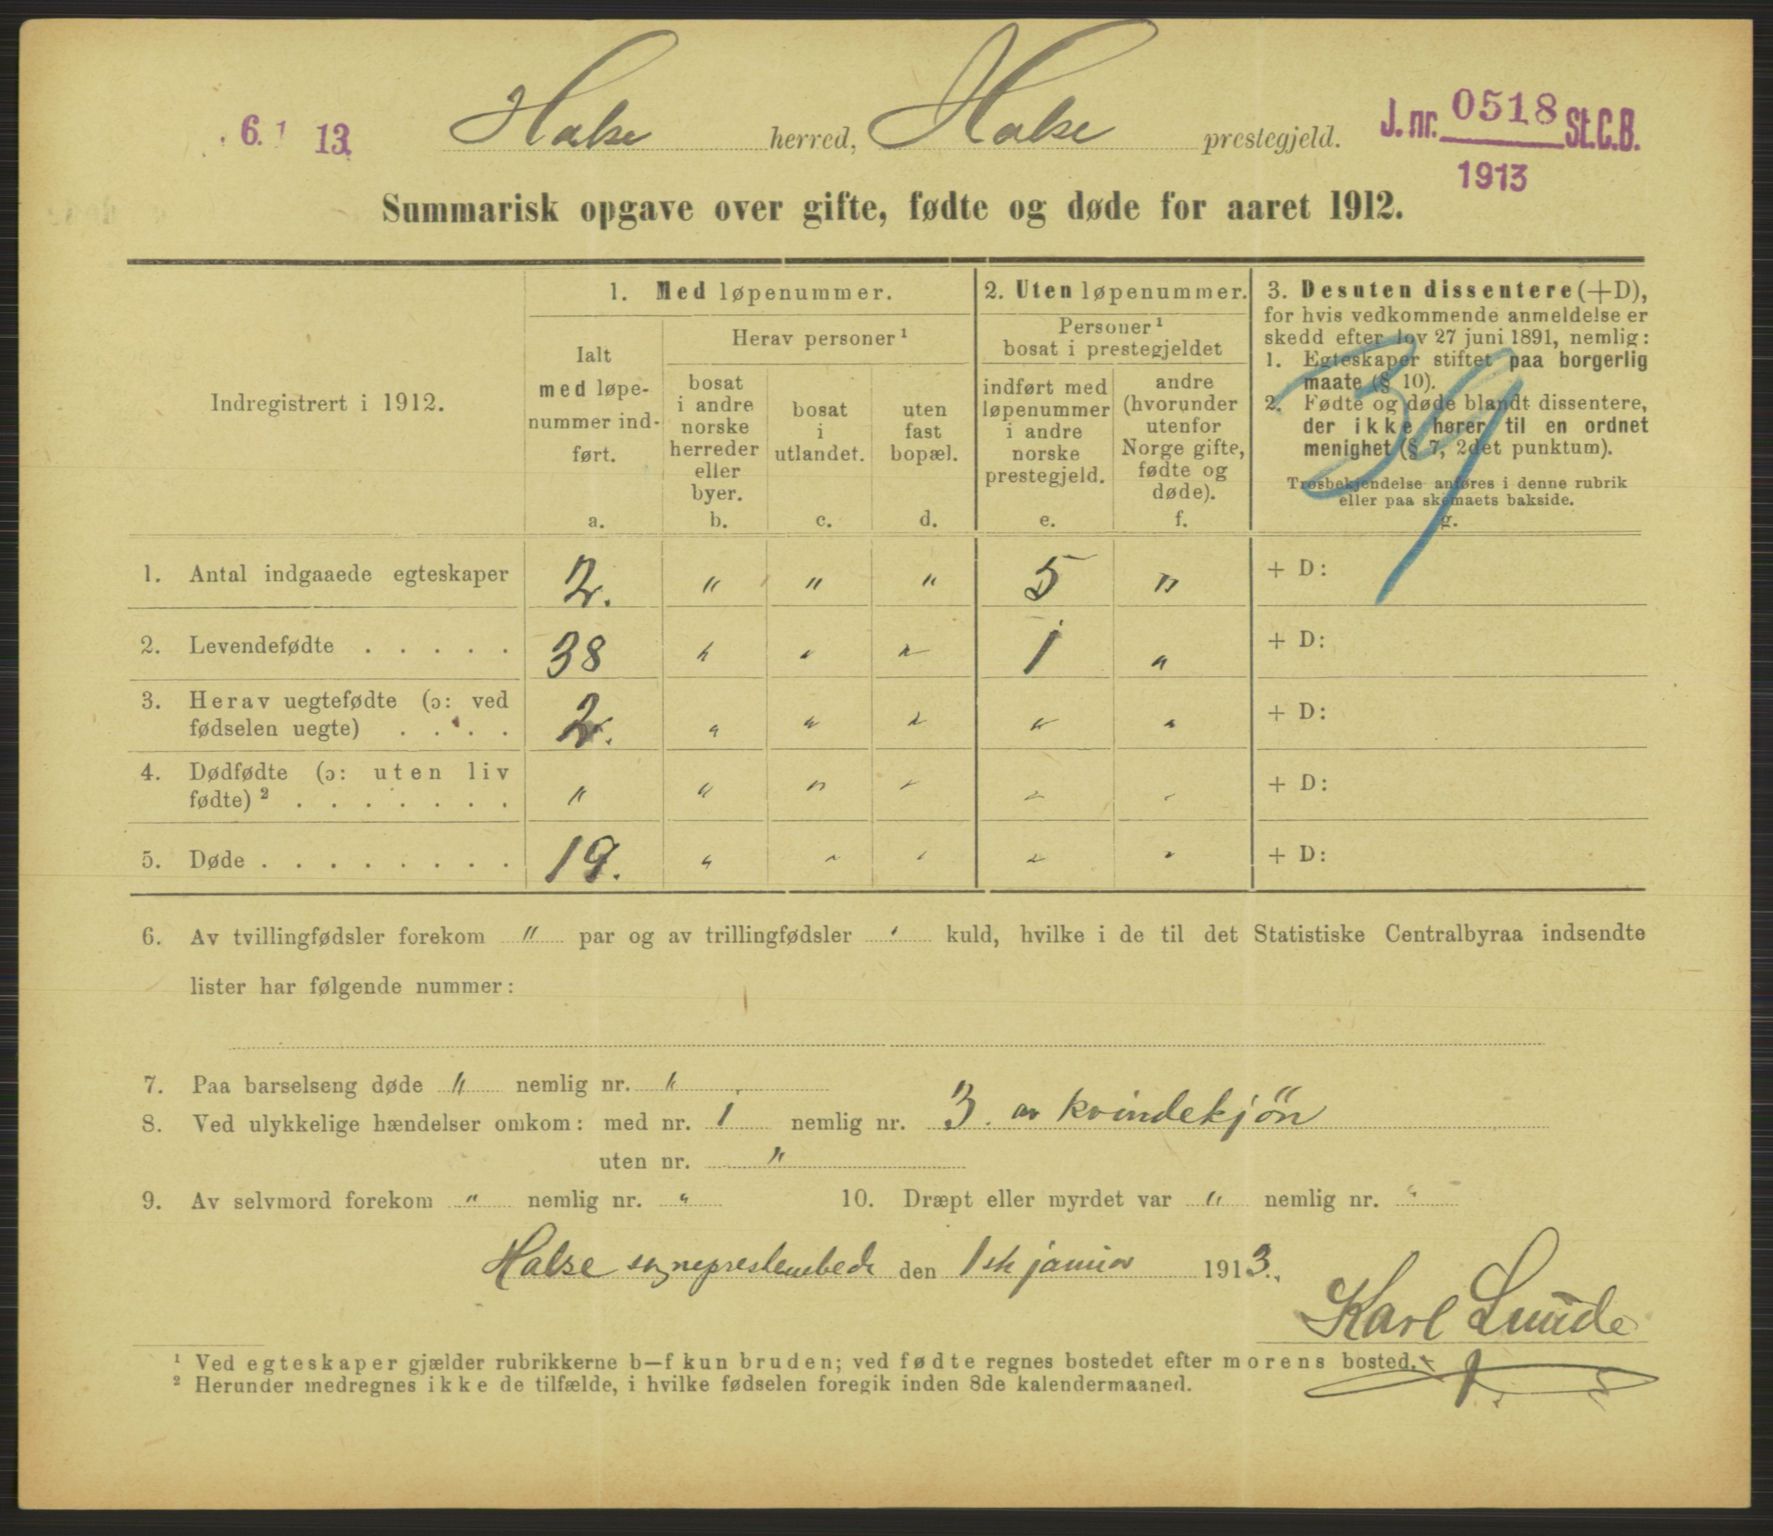 6. 1 13.
Halse herred, Halse prestegjeld.
J. nr. 0518 St.C.B.
1913
Summarisk opgave over gifte, fødte og døde for aaret 1912.
Indregistrert i 1912.
1. Med løpenummer.
Ialt
med løpe-
nummer ind-
ført.
a.
Herav personer ¹
bosat
i andre
norske
herreder
eller
byer.
b.
bosat
i
utlandet.
c.
uten
fast
bopæl.
d.
2. Uten løpenummer.
Personer ¹
bosat i prestegjeldet
indført med
løpenummer
i andre
norske
prestegjeld.
e.
andre
(hvorunder
utenfor
Norge gifte,
fødte og
døde).
f.
3. Desuten dissentere (+D),
for hvis vedkommende anmeldelse er
skedd efter lov 27 juni 1891, nemlig:
1. Egteskaper stiftet paa borgerlig
maate (§ 10).
2. Fødte og døde blandt dissentere,
der ikke hører til en ordnet
menighet (§ 7, 2det punktum).
Trosbekjendelse anføres i denne rubrik
eller paa skemaets bakside.
g.
39
1. Antal indgaaede egteskaper 2. " " " 5 " + D:
2. Levendefødte . . . . . 38 " " " 1 " + D:
3. Herav uegtefødte (ɔ: ved
fødselen uegte) . . . . 2. " " " " " + D:
4. Dødfødte (ɔ: uten liv
fødte) ² . . . . . . . " " " " " " + D:
5. Døde . . . . . . . . 19. " " " " " + D:
6. Av tvillingfødsler forekom " par og av trillingfødsler " kuld, hvilke i de til det Statistiske Centralbyraa indsendte
lister har følgende nummer:
7. Paa barselseng døde " nemlig nr. "
8. Ved ulykkelige hændelser omkom: med nr. 1 nemlig nr. 3. av kvindekjøn
uten nr. "
9. Av selvmord forekom " nemlig nr. " 10. Dræpt eller myrdet var " nemlig nr. "
Halse sogneprestembede den 1ste januar 1913.
Karl Lunde
¹ Ved egteskaper gjælder rubrikkerne b—f kun bruden; ved fødte regnes bostedet efter morens bosted.
² Herunder medregnes ikke de tilfælde, i hvilke fødselen foregik inden 8de kalendermaaned.